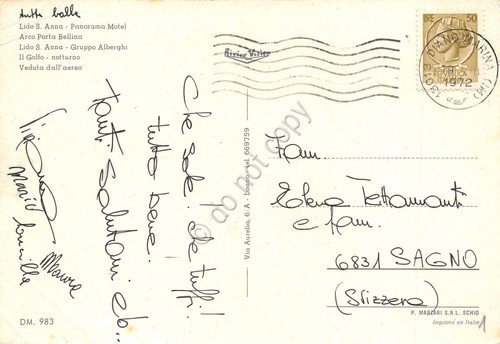 tutto balla
Lido S. Anna - Panorama Motel
Arco Porta Bellina
Lido S. Anna - Gruppo Alberghi
Il Golfo - notturno
Veduta dall'aereo
Che sole! che tuffi!
tutto bene.
tanti salutoni ob...
Mario
Mavra
DM. 983
Via Aurelia, 6/A - Imperia - tel. 669759
Riviera
LIRE 50
DIANO MARINA (IM)
1972
18013
Fam.
Elena Tettamanti
e fam.
6831 SAGNO
(Svizzera)
P. MARZARI S.R.L. SCHIO
Imprimé en Italie
1
© do not copy